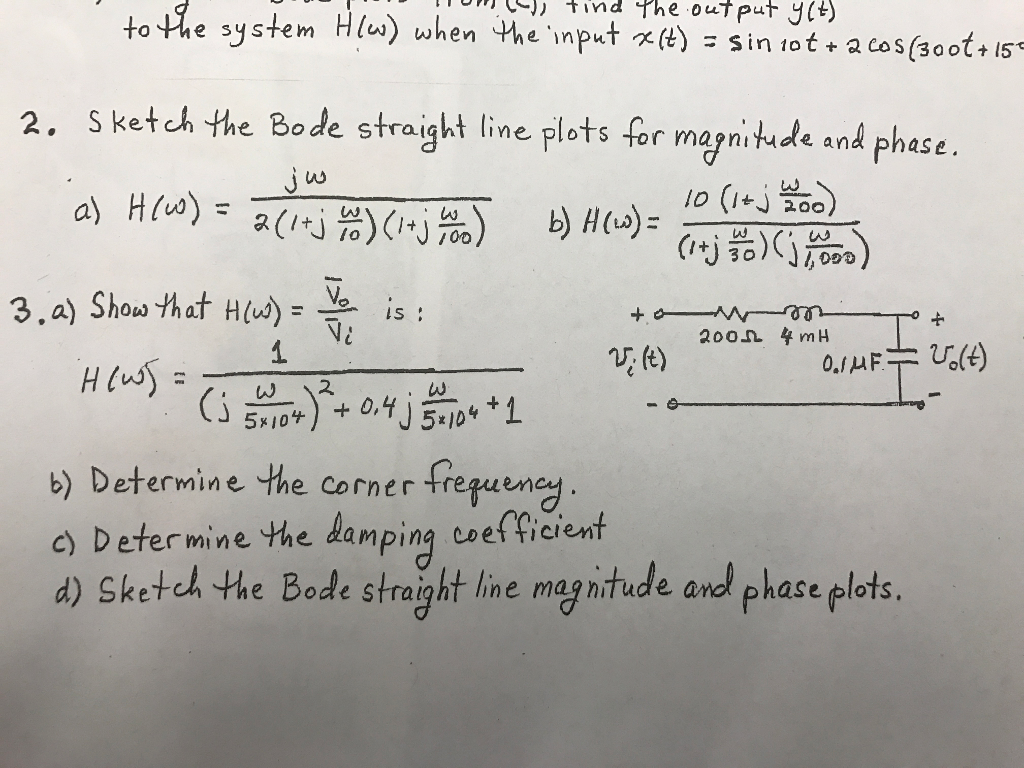 find the output y(t)
to the system H(ω) when the input x(t) = sin 10t + 2 cos(300t + 15°
2. Sketch the Bode straight line plots for magnitude and phase.
a) H(ω) = jω / 2(1+j ω/10)(1+j ω/100)
b) H(ω) = 10 (1+j ω/200) / (1+j ω/30)(j ω/1,000)
3. a) Show that H(ω) = V̅o / V̅i is :
H(ω) = 1 / (j ω/5×10⁴)² + 0,4 j ω/5×10⁴ + 1
+ 200Ω 4 mH +
vi(t) 0.1μF vo(t)
- -
b) Determine the corner frequency.
c) Determine the damping coefficient
d) Sketch the Bode straight line magnitude and phase plots.